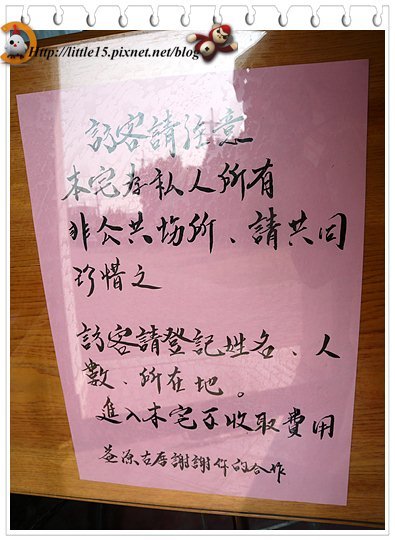 Http://little15.pixnet.net/blog
訪客請注意
本宅為私人所有
非公共場所、請共同
珍惜之
訪客請登記姓名、人
數、所在地。
進入本宅不收取費用
益源古厝謝謝你的合作